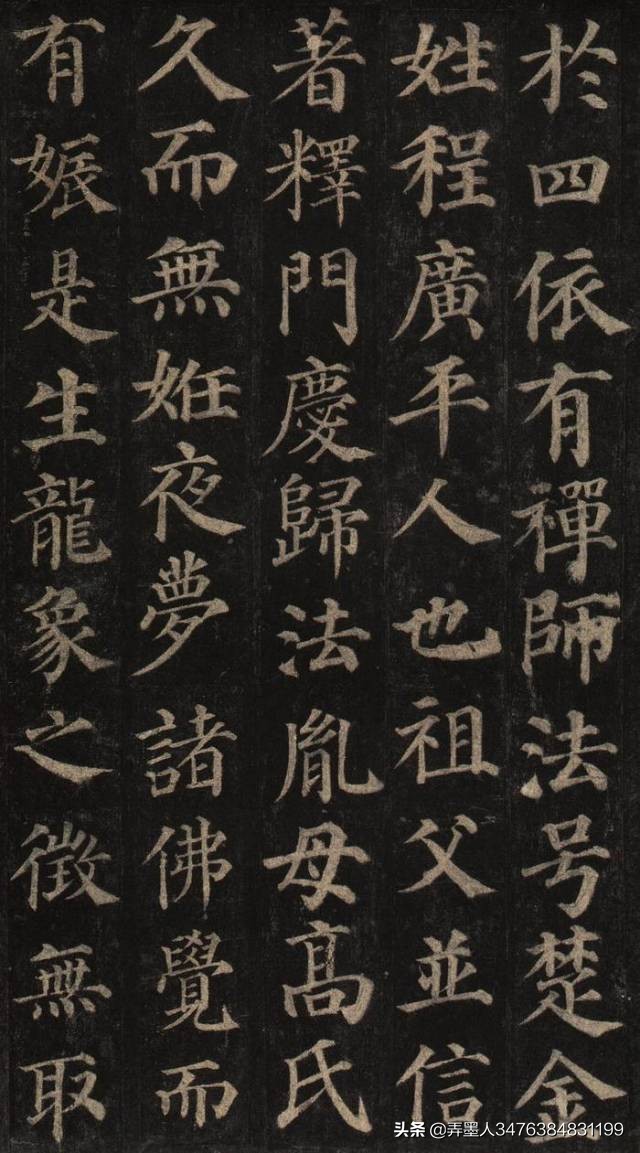 於四依有禪師法号楚金
姓程廣平人也祖父並信
著釋門慶歸法胤母髙氏
久而無姙夜夢諸佛覺而
有娠是生龍象之徵無取
头条 @弄墨人3476384831199